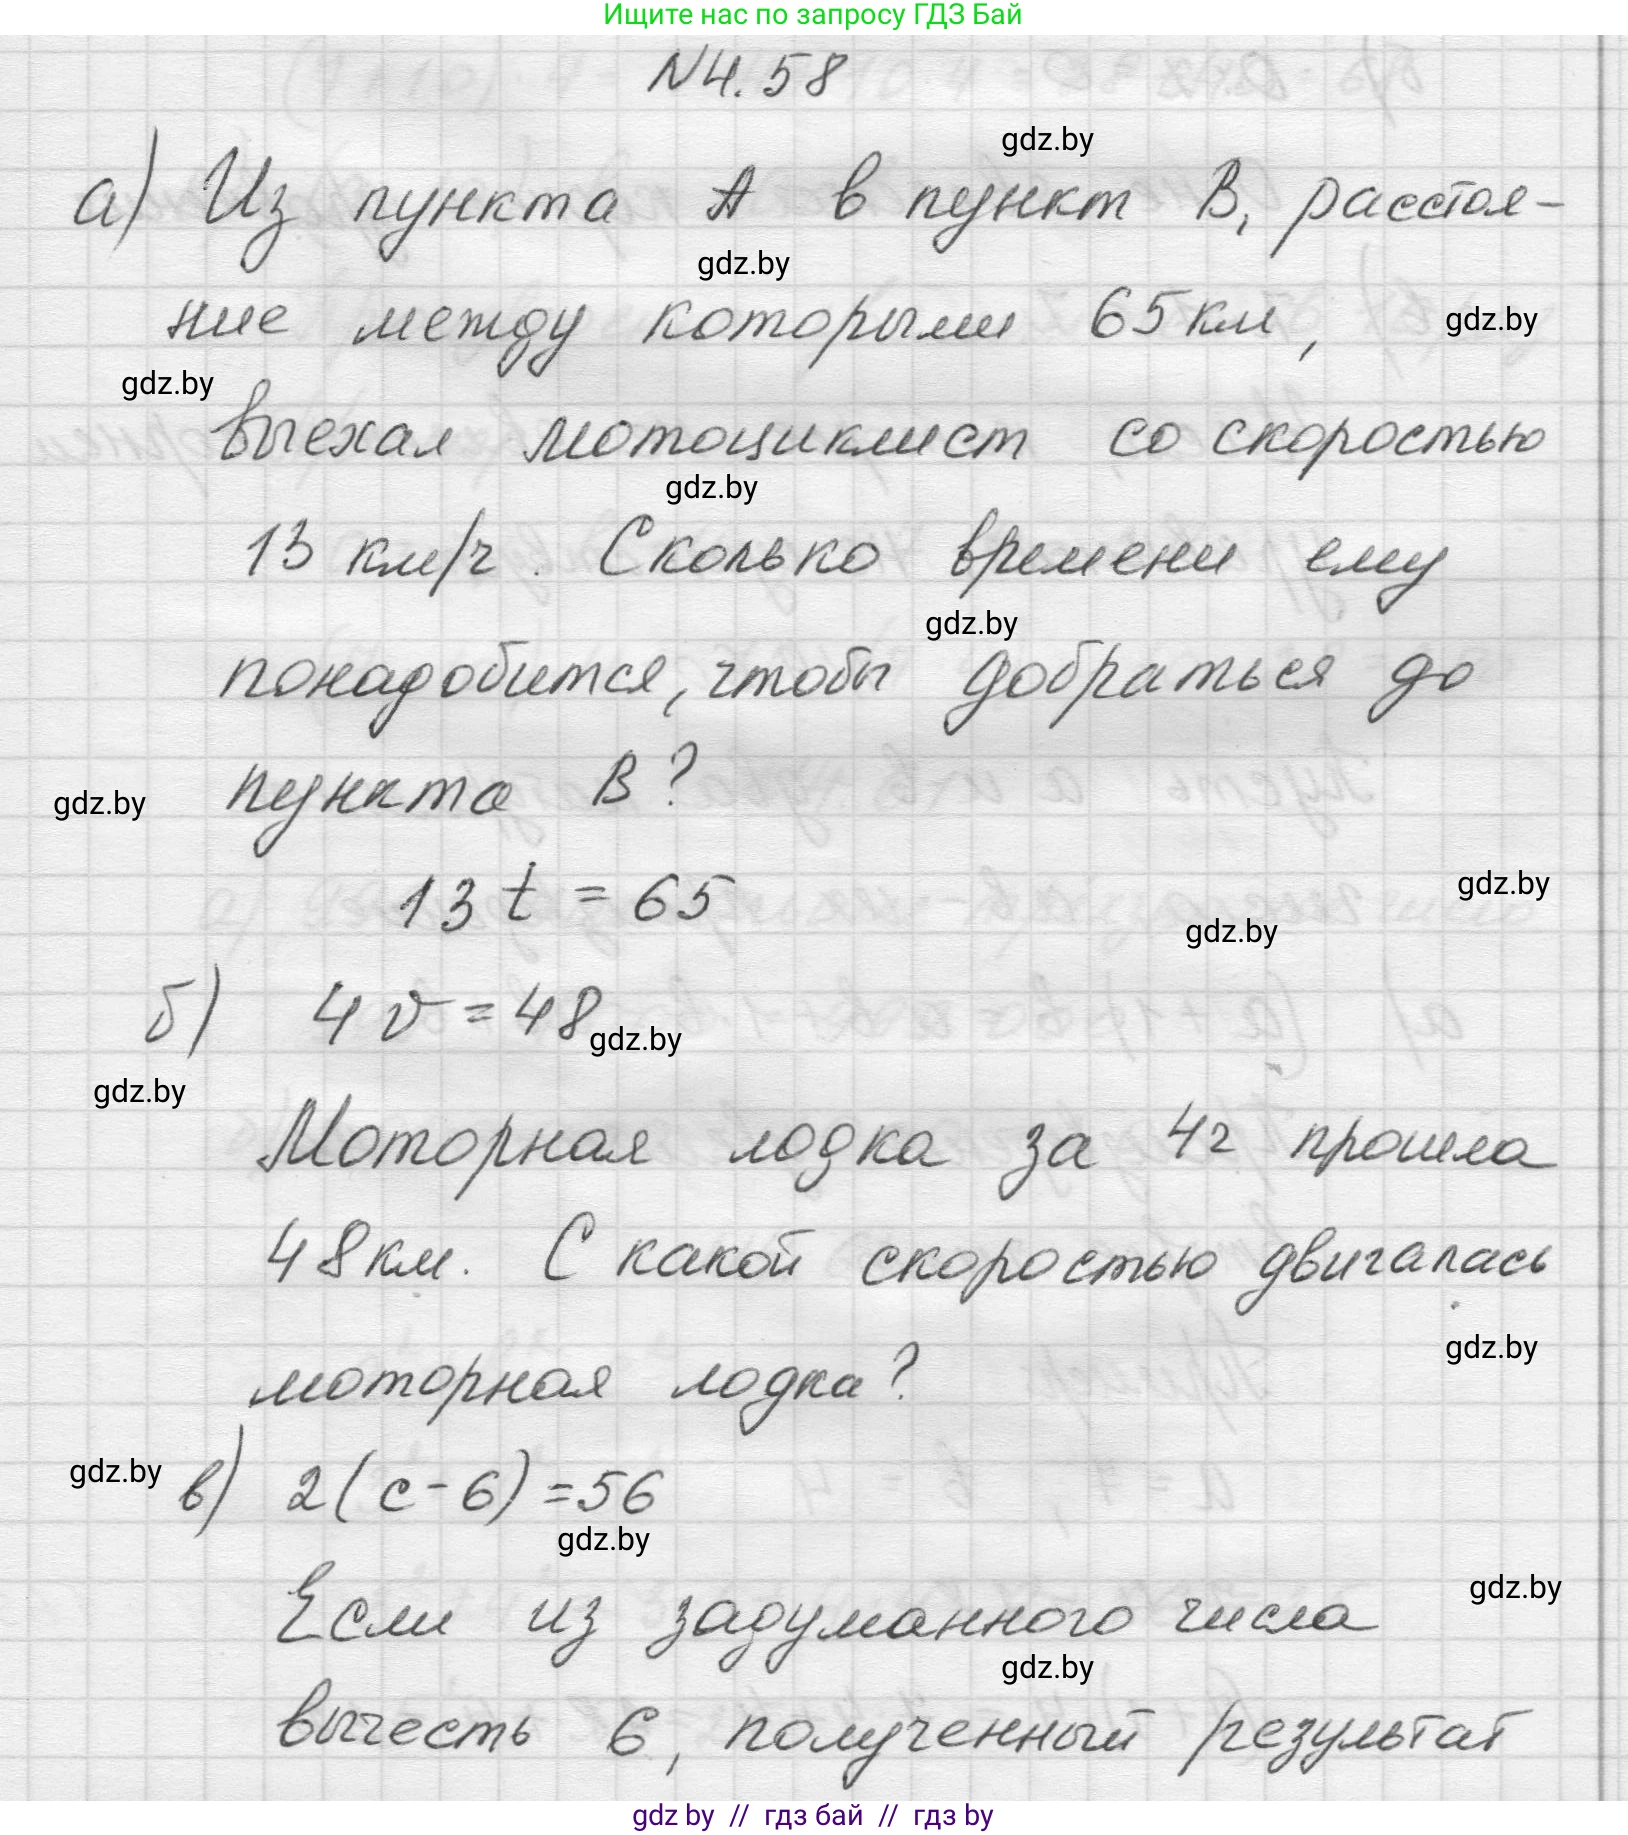 Ищите нас по запросу ГДЗ Бай
N4.58
gdz.by
а) Из пункта А в пункт В, расстоя-
gdz.by
ние между которыми 65 км,
gdz.by
gdz.by
выехал мотоциклист со скоростью
gdz.by
13 км/ч. Сколько времени ему
gdz.by
понадобится, чтобы добраться до
пункта В?
gdz.by
13 t = 65
gdz.by
gdz.by
б) 4 v = 48
gdz.by
gdz.by
Моторная лодка за 4ч прошла
48 км. С какой скоростью двигалась
gdz.by
моторная лодка?
gdz.by
в) 2(c-6)=56
gdz.by
gdz.by
Если из задуманного числа
gdz.by
вычесть 6, полученный результат
gdz by // гдз бай // гдз by